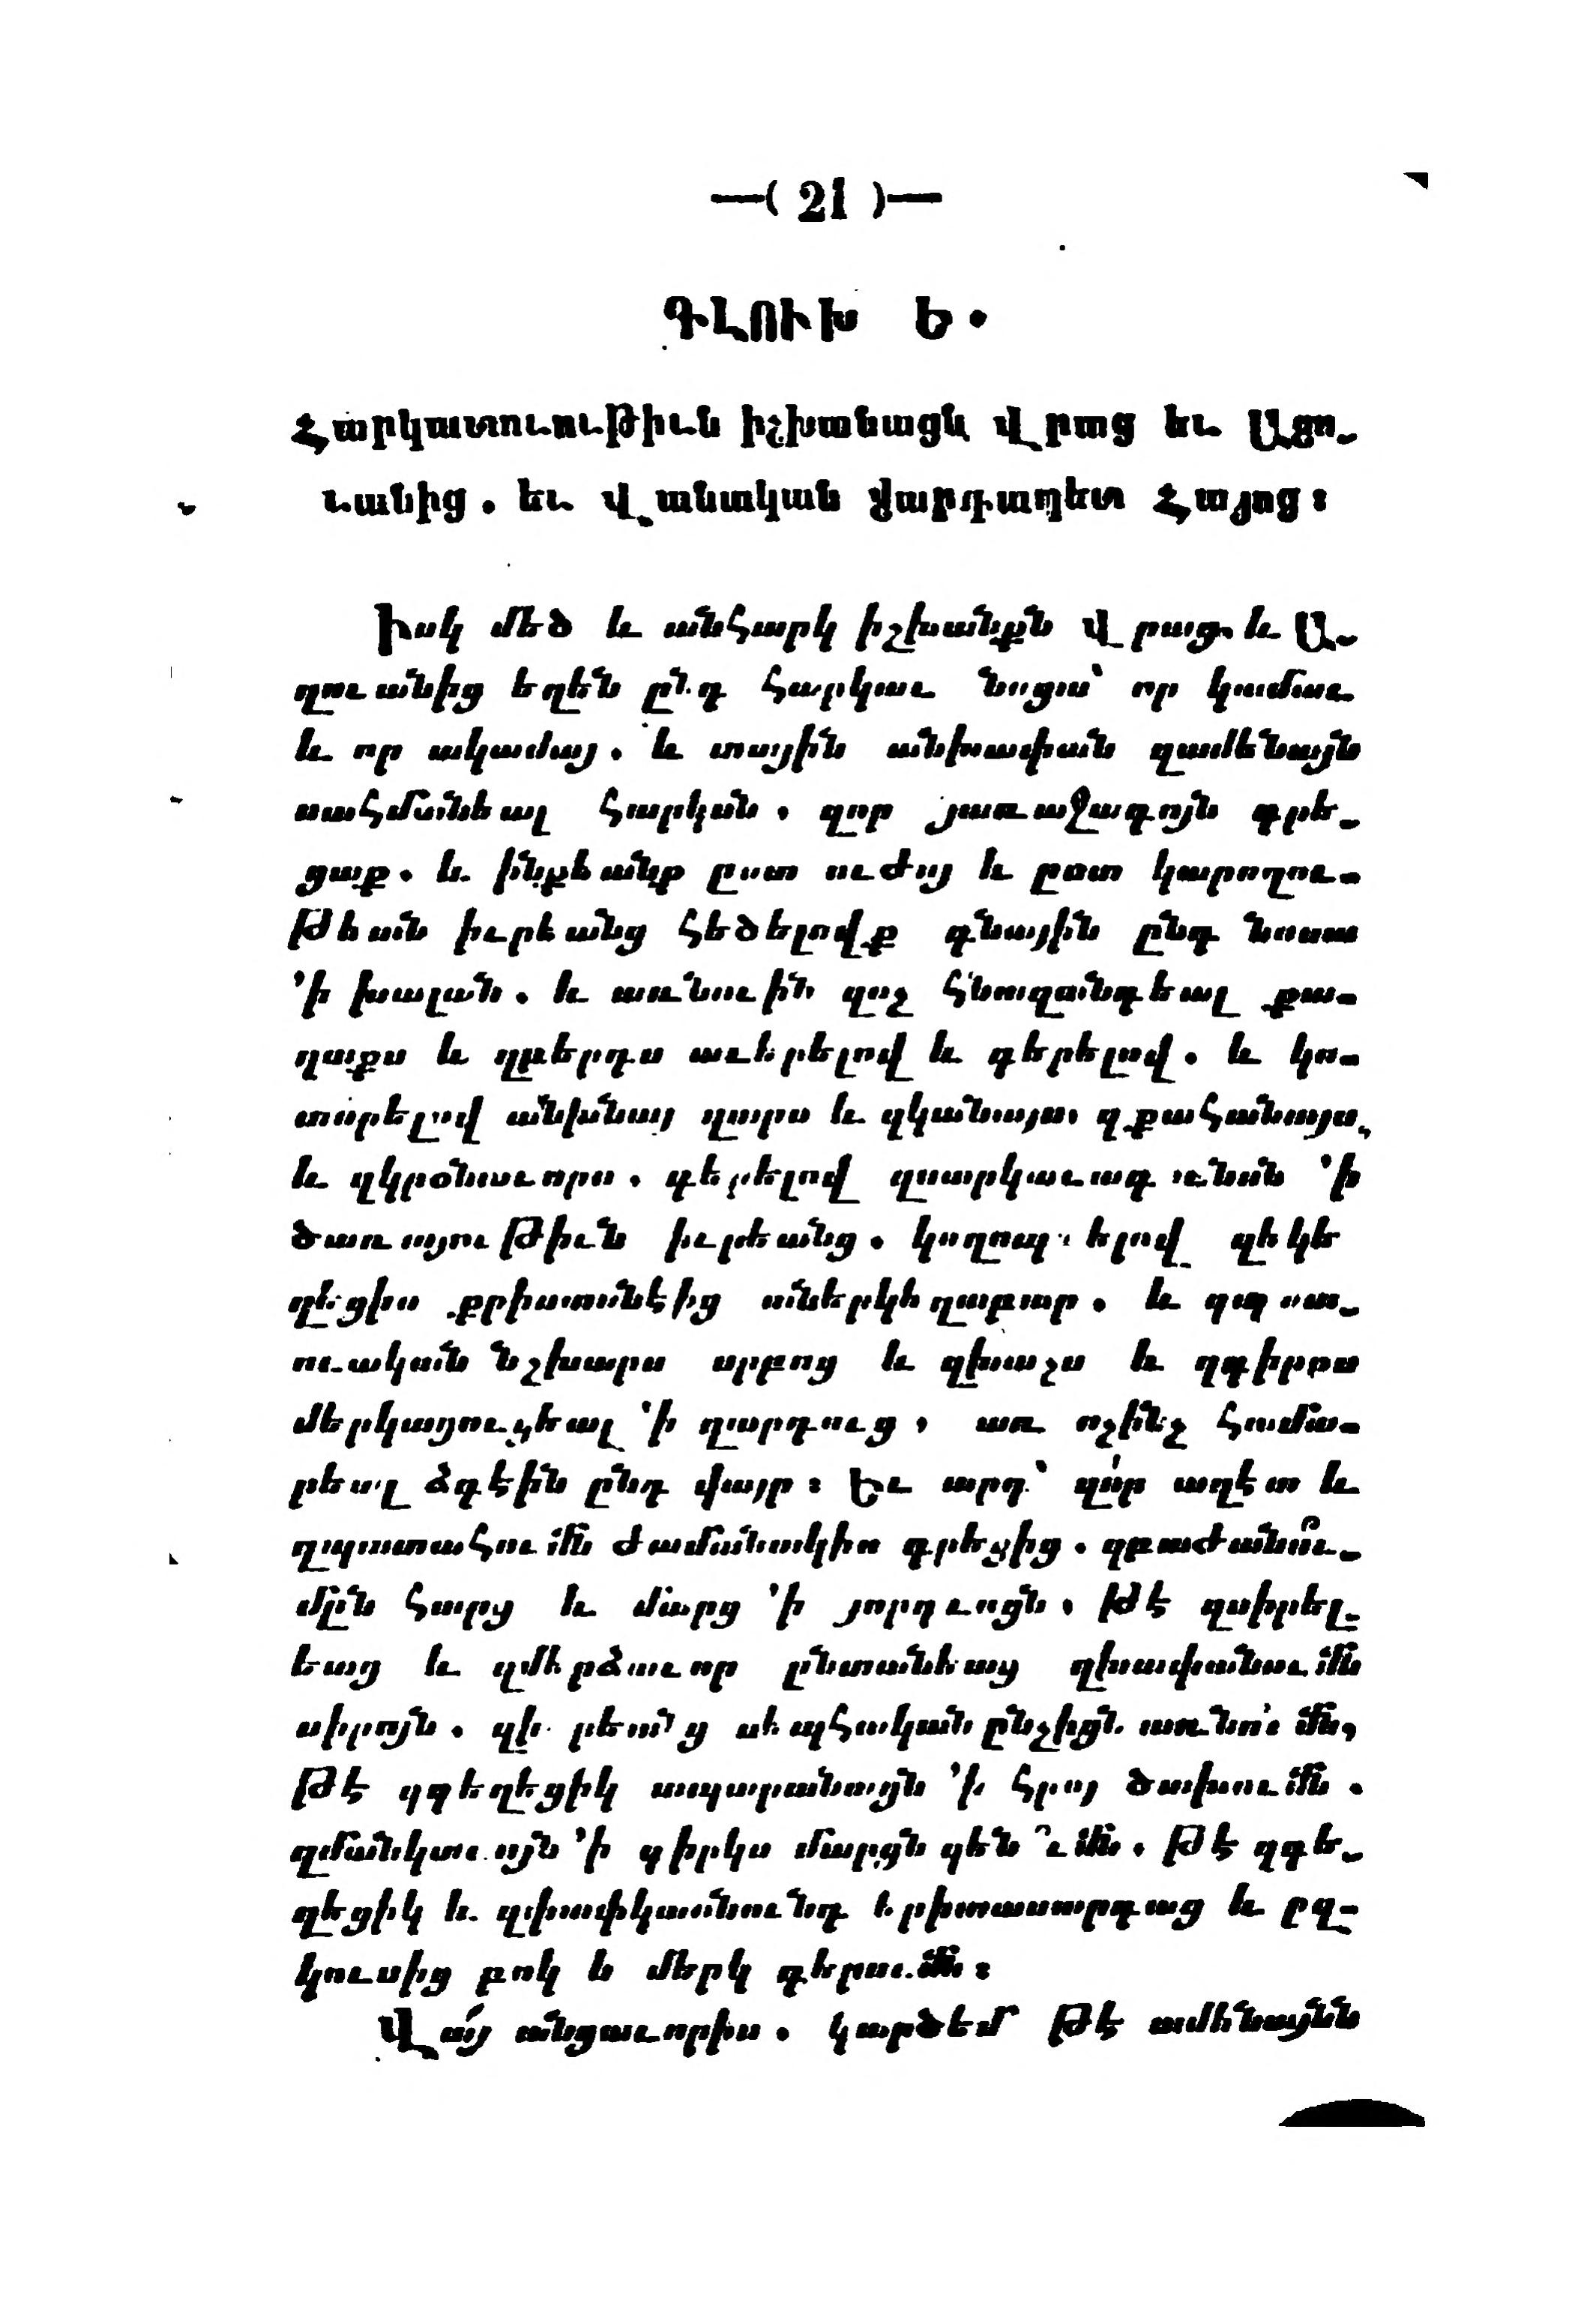 —( 21 )—
ԳԼՈՒԽ Ե.
Հարկատուութիւն իշխանացն Վրաց եւ Աղո-
ւանից. եւ Վանական վարդապետ Հայոց։
Իսկ մեծ և անհարկ իշխանքն Վրաց և Ա-
ղուանից եղեն ընդ հարկաւ նոցա՝ որ կամաւ
և որ ակամայ. և տային անխափան զամենայն
սահմանեալ հարկսն, զոր յառաջագոյն գրե-
ցաք. և ինքեանք ըստ ուժոյ և ըստ կարողու-
թեան իւրեանց հեծելովք գնային ընդ նոսա
՚ի խալան. և առնուին զոչ հնազանդեալ քա-
ղաքս և զբերդս աւերելով և գերելով. և կո-
տորելով անխնայ զարս և զկանայս, զքահանայս
և զկրօնաւորս. գերելով զսարկաւագունսն ՚ի
ծառայութիւն իւրեանց. կողոպտելով զեկե
ղեցիս քրիստոնէից աներկեղաբար. և զպատ-
ուական նշխարս սրբոց և զխաչս և զգիրըս
մերկացուցեալ ՚ի զարդուց, առ ոչինչ համա-
րեալ ձգէին ընդ վայր։ Եւ արդ՝ զո՛ր աղէտ և
զպատահումն ժամանակիս գրեցից. զբաժանու-
մըն հարց և մարց ՚ի յորդւոցն, թէ զսիրել-
եաց և զմերձաւոր ընտանեաց զխափանումն
սիրոյն. զիւրեանց սեպհական ընչիցն առնումն,
թէ զգեղեցիկ ապարանոյն ՚ի հրոյ ծախումն.
զմանկտւոյն ՚ի գիրկս մարցն զենումն. թէ զգե-
ղեցիկ և զփափկասնունդ երիտասարդաց և ըզ-
կուսից բոկ և մերկ գերումն։
Վա՜յ անցաւորիս. կարծեմ թէ ամենայնն